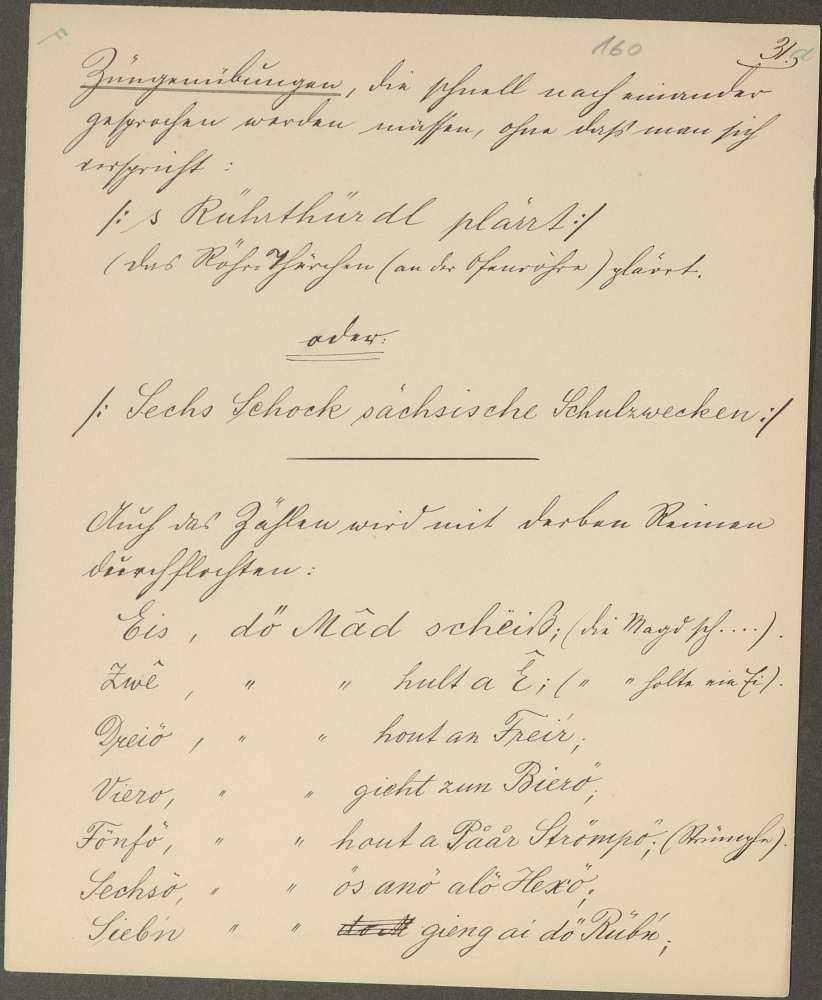 160
31.
Zungenübungen, die schnell nach einander
gesprochen werden müssen, ohne daß man sich
verspricht :
/: s Rührthürdl plärrt :/
(das Röhr-Thürchen (an der Ofenröhre) plärrt.
oder:
/: Sechs Schock sächsische Schulzwecken :/
Auch das Zählen wird mit derben Reimen
durchflochten :
Eis, dö Mâd schëiß; (die Magd sch....).
Zwê, " " hult a Ê; ( " " holte ein Ei).
Dreiö, " " hout an Freir;
Viero, " " gieht zun Bierö;
Fönfö, " " hout a Påår Strömpö; (Strümpfe).
Sechsö, " " ös anö alö Hexö;
Siebn " " gieng ai dö Rübn;